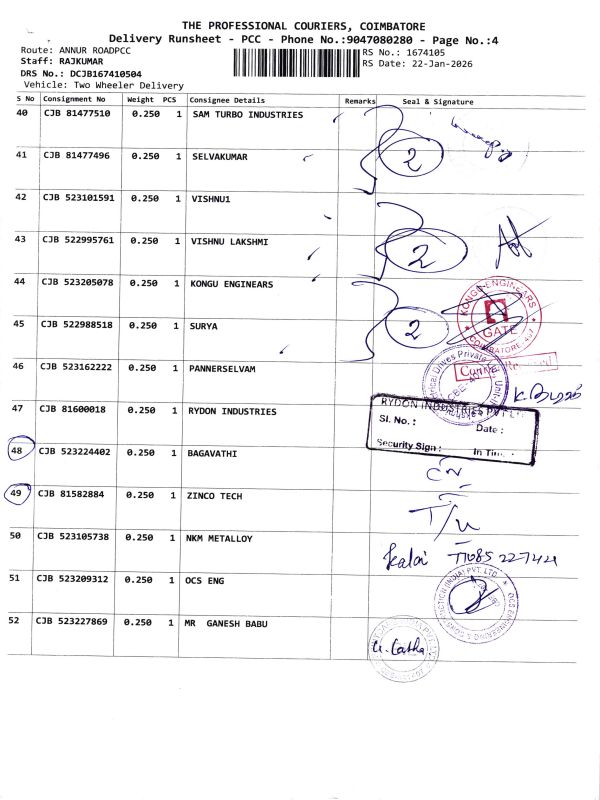 THE PROFESSIONAL COURIERS, COIMBATORE
Delivery Runsheet - PCC - Phone No.:9047080280 - Page No.:4
Route: ANNUR ROADPCC
RS No.: 1674105
Staff: RAJKUMAR
RS Date: 22-Jan-2026
DRS No.: DCJB167410504
Vehicle: Two Wheeler Delivery
S No Consignment No Weight PCS Consignee Details Remarks Seal & Signature
40 CJB 81477510 0.250 1 SAM TURBO INDUSTRIES
41 CJB 81477496 0.250 1 SELVAKUMAR 2
42 CJB 523101591 0.250 1 VISHNU1
43 CJB 522995761 0.250 1 VISHNU LAKSHMI 2
44 CJB 523205078 0.250 1 KONGU ENGINEARS
KONGU ENGINEARS
GATE
COIMBATORE
45 CJB 522988518 0.250 1 SURYA 2
46 CJB 523162222 0.250 1 PANNERSELVAM
47 CJB 81600018 0.250 1 RYDON INDUSTRIES
RYDON INDUSTRIES PVT
Sl. No. :
Date :
Security Sign :
In Time :
48 CJB 523224402 0.250 1 BAGAVATHI
49 CJB 81582884 0.250 1 ZINCO TECH
T/u
50 CJB 523105738 0.250 1 NKM METALLOY
Kalai
51 CJB 523209312 0.250 1 OCS ENG
OCS ENGINEERING & CONSTRUCTION (INDIA) PVT. LTD.
52 CJB 523227869 0.250 1 MR GANESH BABU
G. Latha